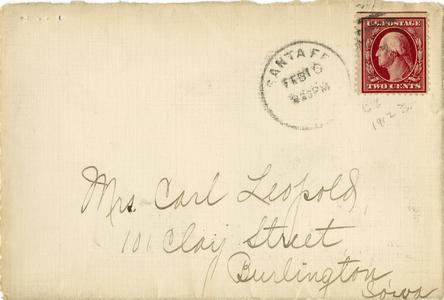 U.S. POSTAGE
TWO CENTS
SANTA FE
FEB 16
PM
1912
Mrs. Carl Leopold,
101 Clay Street
Burlington,
Iowa